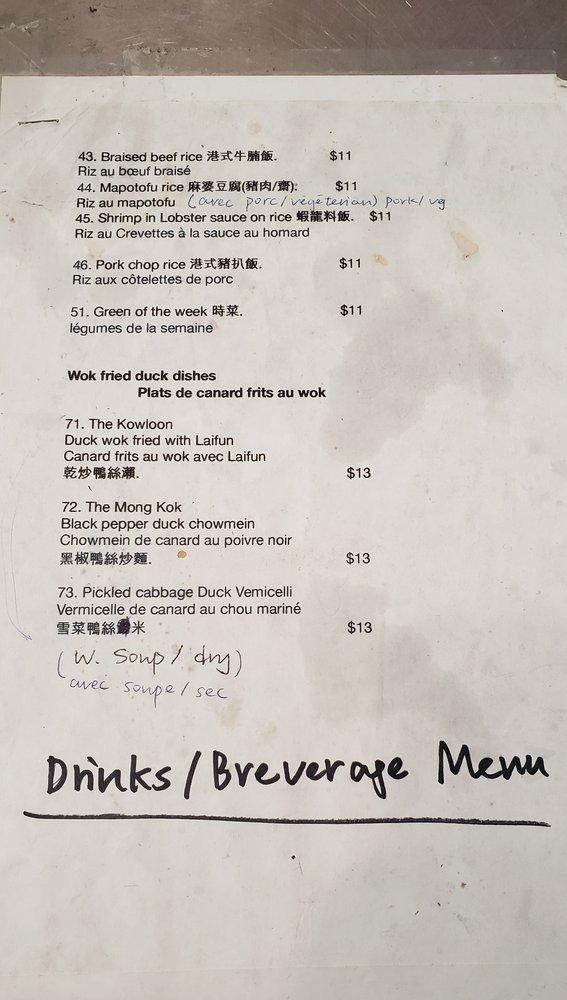 43. Braised beef rice 港式牛腩飯. $11
Riz au bœuf braisé
44. Mapotofu rice 麻婆豆腐(豬肉/齋). $11
Riz au mapotofu (avec porc/végéterian) pork/vg
45. Shrimp in Lobster sauce on rice 蝦龍料飯. $11
Riz au Crevettes à la sauce au homard
46. Pork chop rice 港式豬扒飯. $11
Riz aux côtelettes de porc
51. Green of the week 時菜. $11
légumes de la semaine
Wok fried duck dishes
Plats de canard frits au wok
71. The Kowloon
Duck wok fried with Laifun
Canard frits au wok avec Laifun
乾炒鴨絲瀨. $13
72. The Mong Kok
Black pepper duck chowmein
Chowmein de canard au poivre noir
黑椒鴨絲炒麵. $13
73. Pickled cabbage Duck Vemicelli
Vermicelle de canard au chou mariné
雪菜鴨絲米 $13
(w. Soup / dry)
avec soupe / sec
Drinks/Breverage Menu